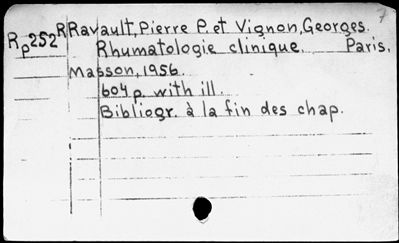 7
Rp252 RRavault, Pierre P. et Vignon, Georges.
Rhumatologie clinique. Paris,
Masson, 1956.
604 p. with ill.
Bibliogr. à la fin des chap.